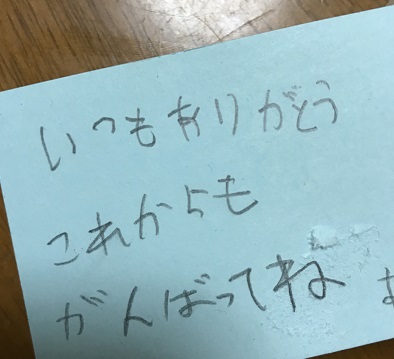 いつもありがとう
これからも
がんばってね